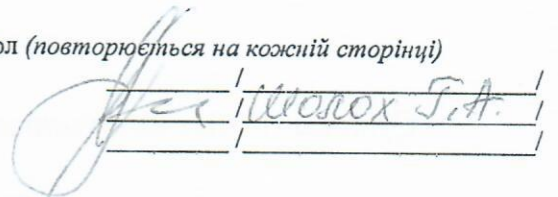 ол (повторюється на кожній сторінці)
/ /
/ Шолох Г.А. /
/ /